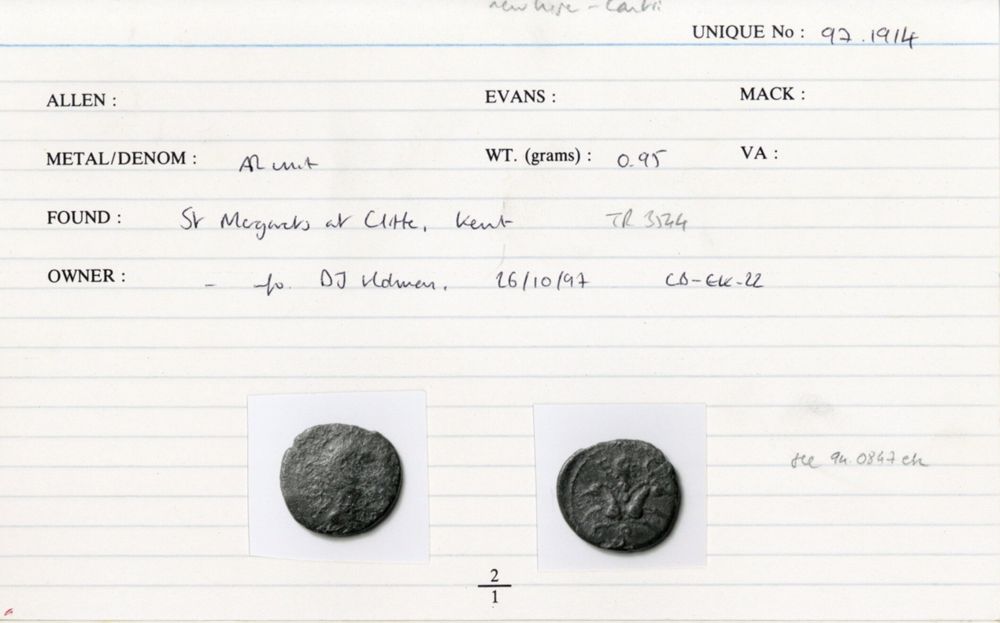 UNIQUE No : 97.1914
ALLEN : EVANS : MACK :
METAL/DENOM : AR unit WT. (grams) : 0.95 VA :
FOUND : St Margarets at Cliffe, Kent TR 3544
OWNER : - DJ Holman, 26/10/97 CD-EK-22
see 94.0847
2
1